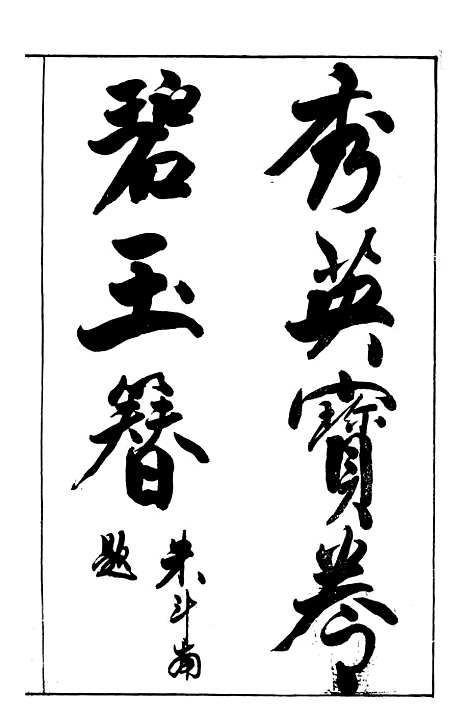 秀英寶卷
碧玉簪
朱斗南
題